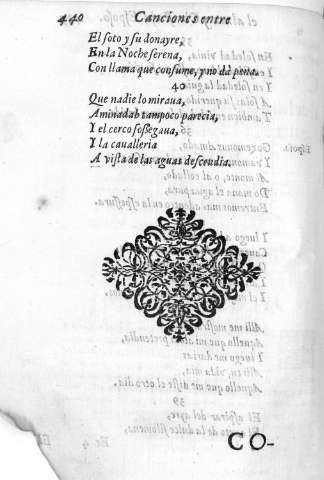 440 Canciones entre
El soto y su donayre,
En la Noche serena,
Con llama que consume, y no da pena.
40
Que nadie lo miraua,
Aminadab tampoco parecia,
Y el cerco sosßegaua,
Y la caualleria
A vista de las aguas descendia.
CO-